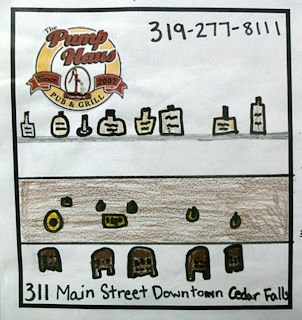 319-277-8111
The
Pump
Haus
Since 2002
PUB & GRILL
311 Main Street Downtown Cedar Falls